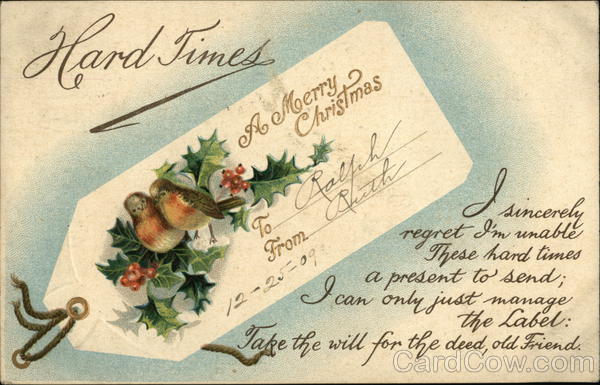 Hard Times
A Merry
Christmas
To Ralph
From Ruth
12-25-09
I sincerely
regret I'm unable
These hard times
a present to send;
I can only just manage
the Label:
Take the will for the deed, old Friend.
CardCow.com